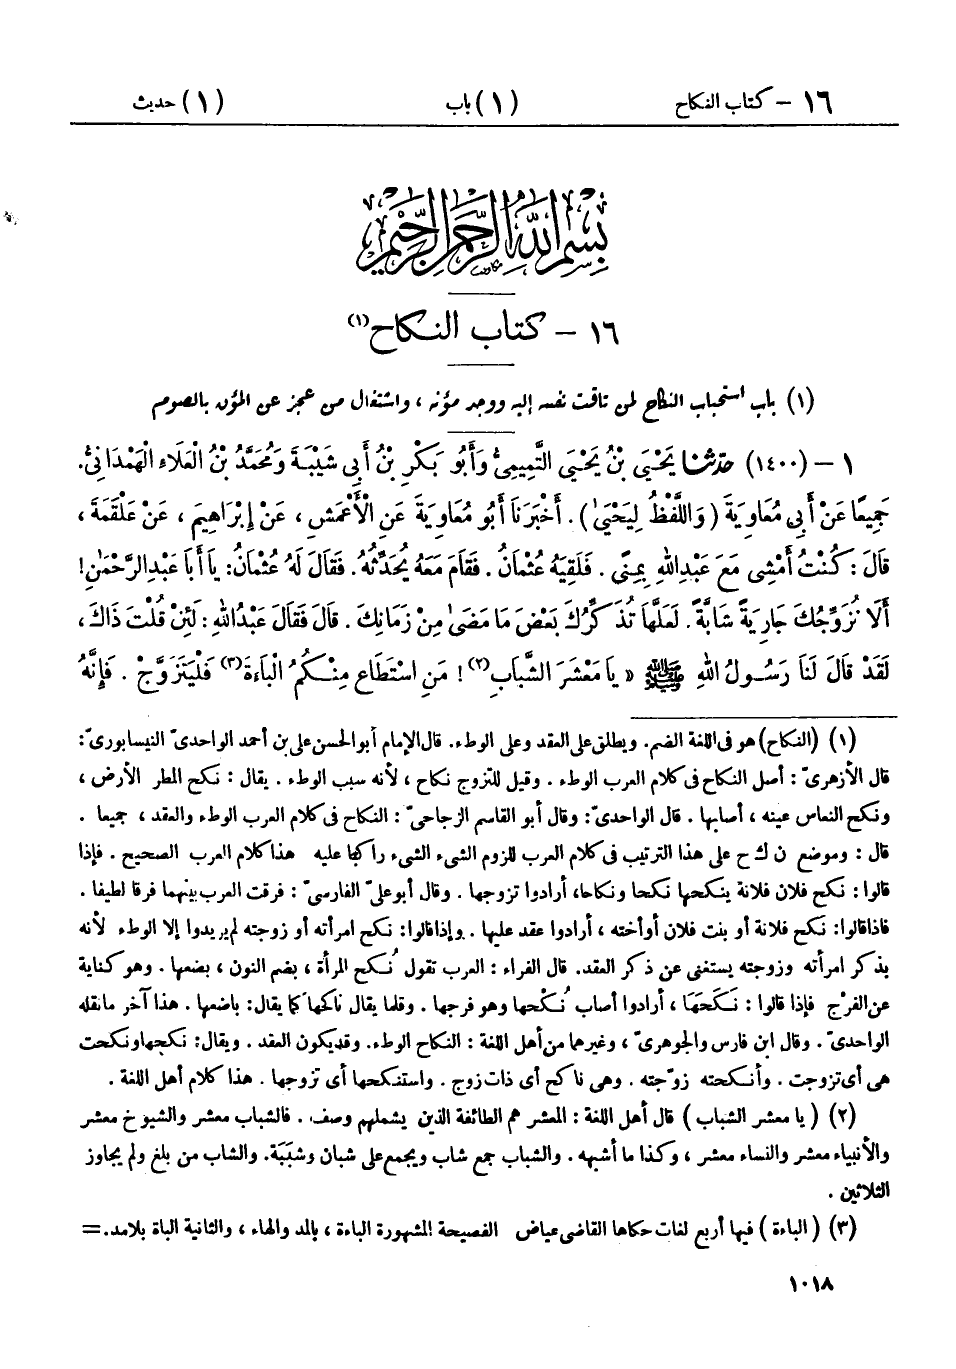 ١٦ – كتاب النكاح (١) باب (١) حديث
بسم الله الرحمن الرحيم
١٦ – كتاب النكاح(١)
(١) باب استحباب النكاح لمن تاقت نفسه إليه ووجد مؤنه ، واشتغال من عجز عن المؤن بالصوم
١ – (١٤٠٠) حَدَّثَنَا يَحْيَىٰ بْنُ يَحْيَىٰ التَّمِيمِيُّ وَأَبُو بَكْرِ بْنُ أَبِي شَيْبَةَ وَمُحَمَّدُ بْنُ الْعَلَاءِ الْهَمْدَانِيُّ.
جَمِيعًا عَنْ أَبِي مُعَاوِيَةَ (وَاللَّفْظُ لِيَحْيَىٰ) . أَخْبَرَنَا أَبُو مُعَاوِيَةَ عَنِ الْأَعْمَشِ ، عَنْ إِبْرَاهِيمَ ، عَنْ عَلْقَمَةَ ،
قَالَ : كُنْتُ أَمْشِي مَعَ عَبْدِ اللهِ بِمِنًى . فَلَقِيَهُ عُثْمَانُ . فَقَامَ مَعَهُ يُحَدِّثُهُ. فَقَالَ لَهُ عُثْمَانُ: يَا أَبَا عَبْدِ الرَّحْمَٰنِ!
أَلَا نُزَوِّجُكَ جَارِيَةً شَابَّةً . لَعَلَّهَا تُذَكِّرُكَ بَعْضَ مَا مَضَىٰ مِنْ زَمَانِكَ . قَالَ فَقَالَ عَبْدُ اللهِ : لَئِنْ قُلْتَ ذَاكَ ،
لَقَدْ قَالَ لَنَا رَسُولُ اللهِ ﷺ « يَا مَعْشَرَ الشَّبَابِ(٢) ! مَنِ اسْتَطَاعَ مِنْكُمُ الْبَاءَةَ(٣) فَلْيَتَزَوَّجْ . فَإِنَّهُ
(١) (النكاح) هو فى اللغة الضم. ويطلق على العقد وعلى الوطء. قال الإمام أبو الحسن على بن أحمد الواحدىّ النيسابورىّ:
قال الأزهرىّ : أصل النكاح فى كلام العرب الوطء . وقيل للتزوج نكاح ، لأنه سبب الوطء . يقال : نكح المطر الأرض ،
ونكح النعاس عينه ، أصابها . قال الواحدىّ: وقال أبو القاسم الزجاجىّ : النكاح فى كلام العرب الوطء والعقد ، جميعا .
قال : وموضع ن ك ح على هذا الترتيب فى كلام العرب للزوم الشىء الشىء راكبا عليه هذا كلام العرب الصحيح . فإذا
قالوا : نكح فلان فلانة ينكحها نكحا ونكاحا، أرادوا تزوجها . وقال أبو علىّ الفارسىّ : فرقت العرب بينهما فرقا لطيفا .
فاذا قالوا: نكح فلانة أو بنت فلان أو أخته ، أرادوا عقد عليها . وإذا قالوا: نكح امرأته أو زوجته لم يريدوا إلا الوطء لأنه
بذكر امرأته وزوجته يستغنى عن ذكر العقد. قال الفراء : العرب تقول نُكح المرأة ، بضم النون ، بضعها . وهو كناية
عن الفرْج فإذا قالوا : نَكَحَهَا ، أرادوا أصاب نُكْحها وهو فرجها . وقلما يقال ناكحها كما يقال: باضعها . هذا آخر ما نقله
الواحدىّ . وقال ابن فارس والجوهرىّ ، وغيرهما من أهل اللغة : النكاح الوطء. وقد يكون العقد . ويقال: نكحتها ونكحت
هى أى تزوجت . وأنكحته زوّجته . وهى ناكح أى ذات زوج . واستنكحها أى تزوجها . هذا كلام أهل اللغة .
(٢) ( يا معشر الشباب ) قال أهل اللغة : المعشر هم الطائفة الذين يشملهم وصف . فالشباب معشر والشيوخ معشر
والأنبياء معشر والنساء معشر ، وكذا ما أشبهه . والشباب جمع شاب ويجمع على شبان وشَبَبَة. والشاب من بلغ ولم يجاوز
الثلاثين .
(٣) ( الباءة ) فيها أربع لغات حكاها القاضى عياض الفصيحة المشهورة الباءة ، بالمد والهاء ، والثانية الباة بلا مد.=
١٠١٨